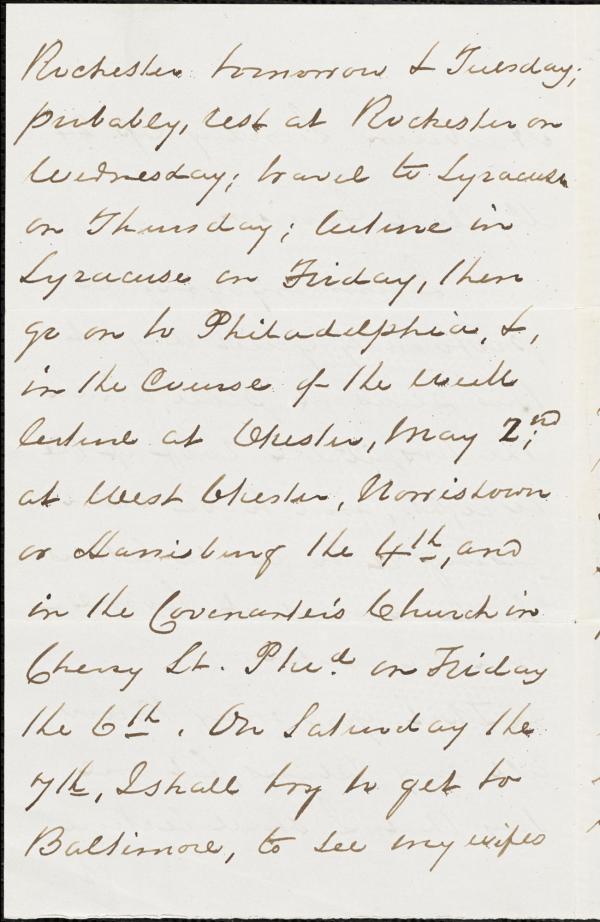 Rochester tomorrow & Tuesday;
probably, rest at Rochester on
Wednesday; travel to Syracuse
on Thursday; lecture in
Syracuse on Friday, then
go on to Philadelphia, &,
in the Course of the week
lecture at Chester, May 2nd;
at West Chester, Norristown
or Harrisburg the 4th, and
in the Covenanter's Church in
Cherry St. Phila. on Friday
the 6th. On Saturday the
7th, I shall try to get to
Baltimore, to see my wife's